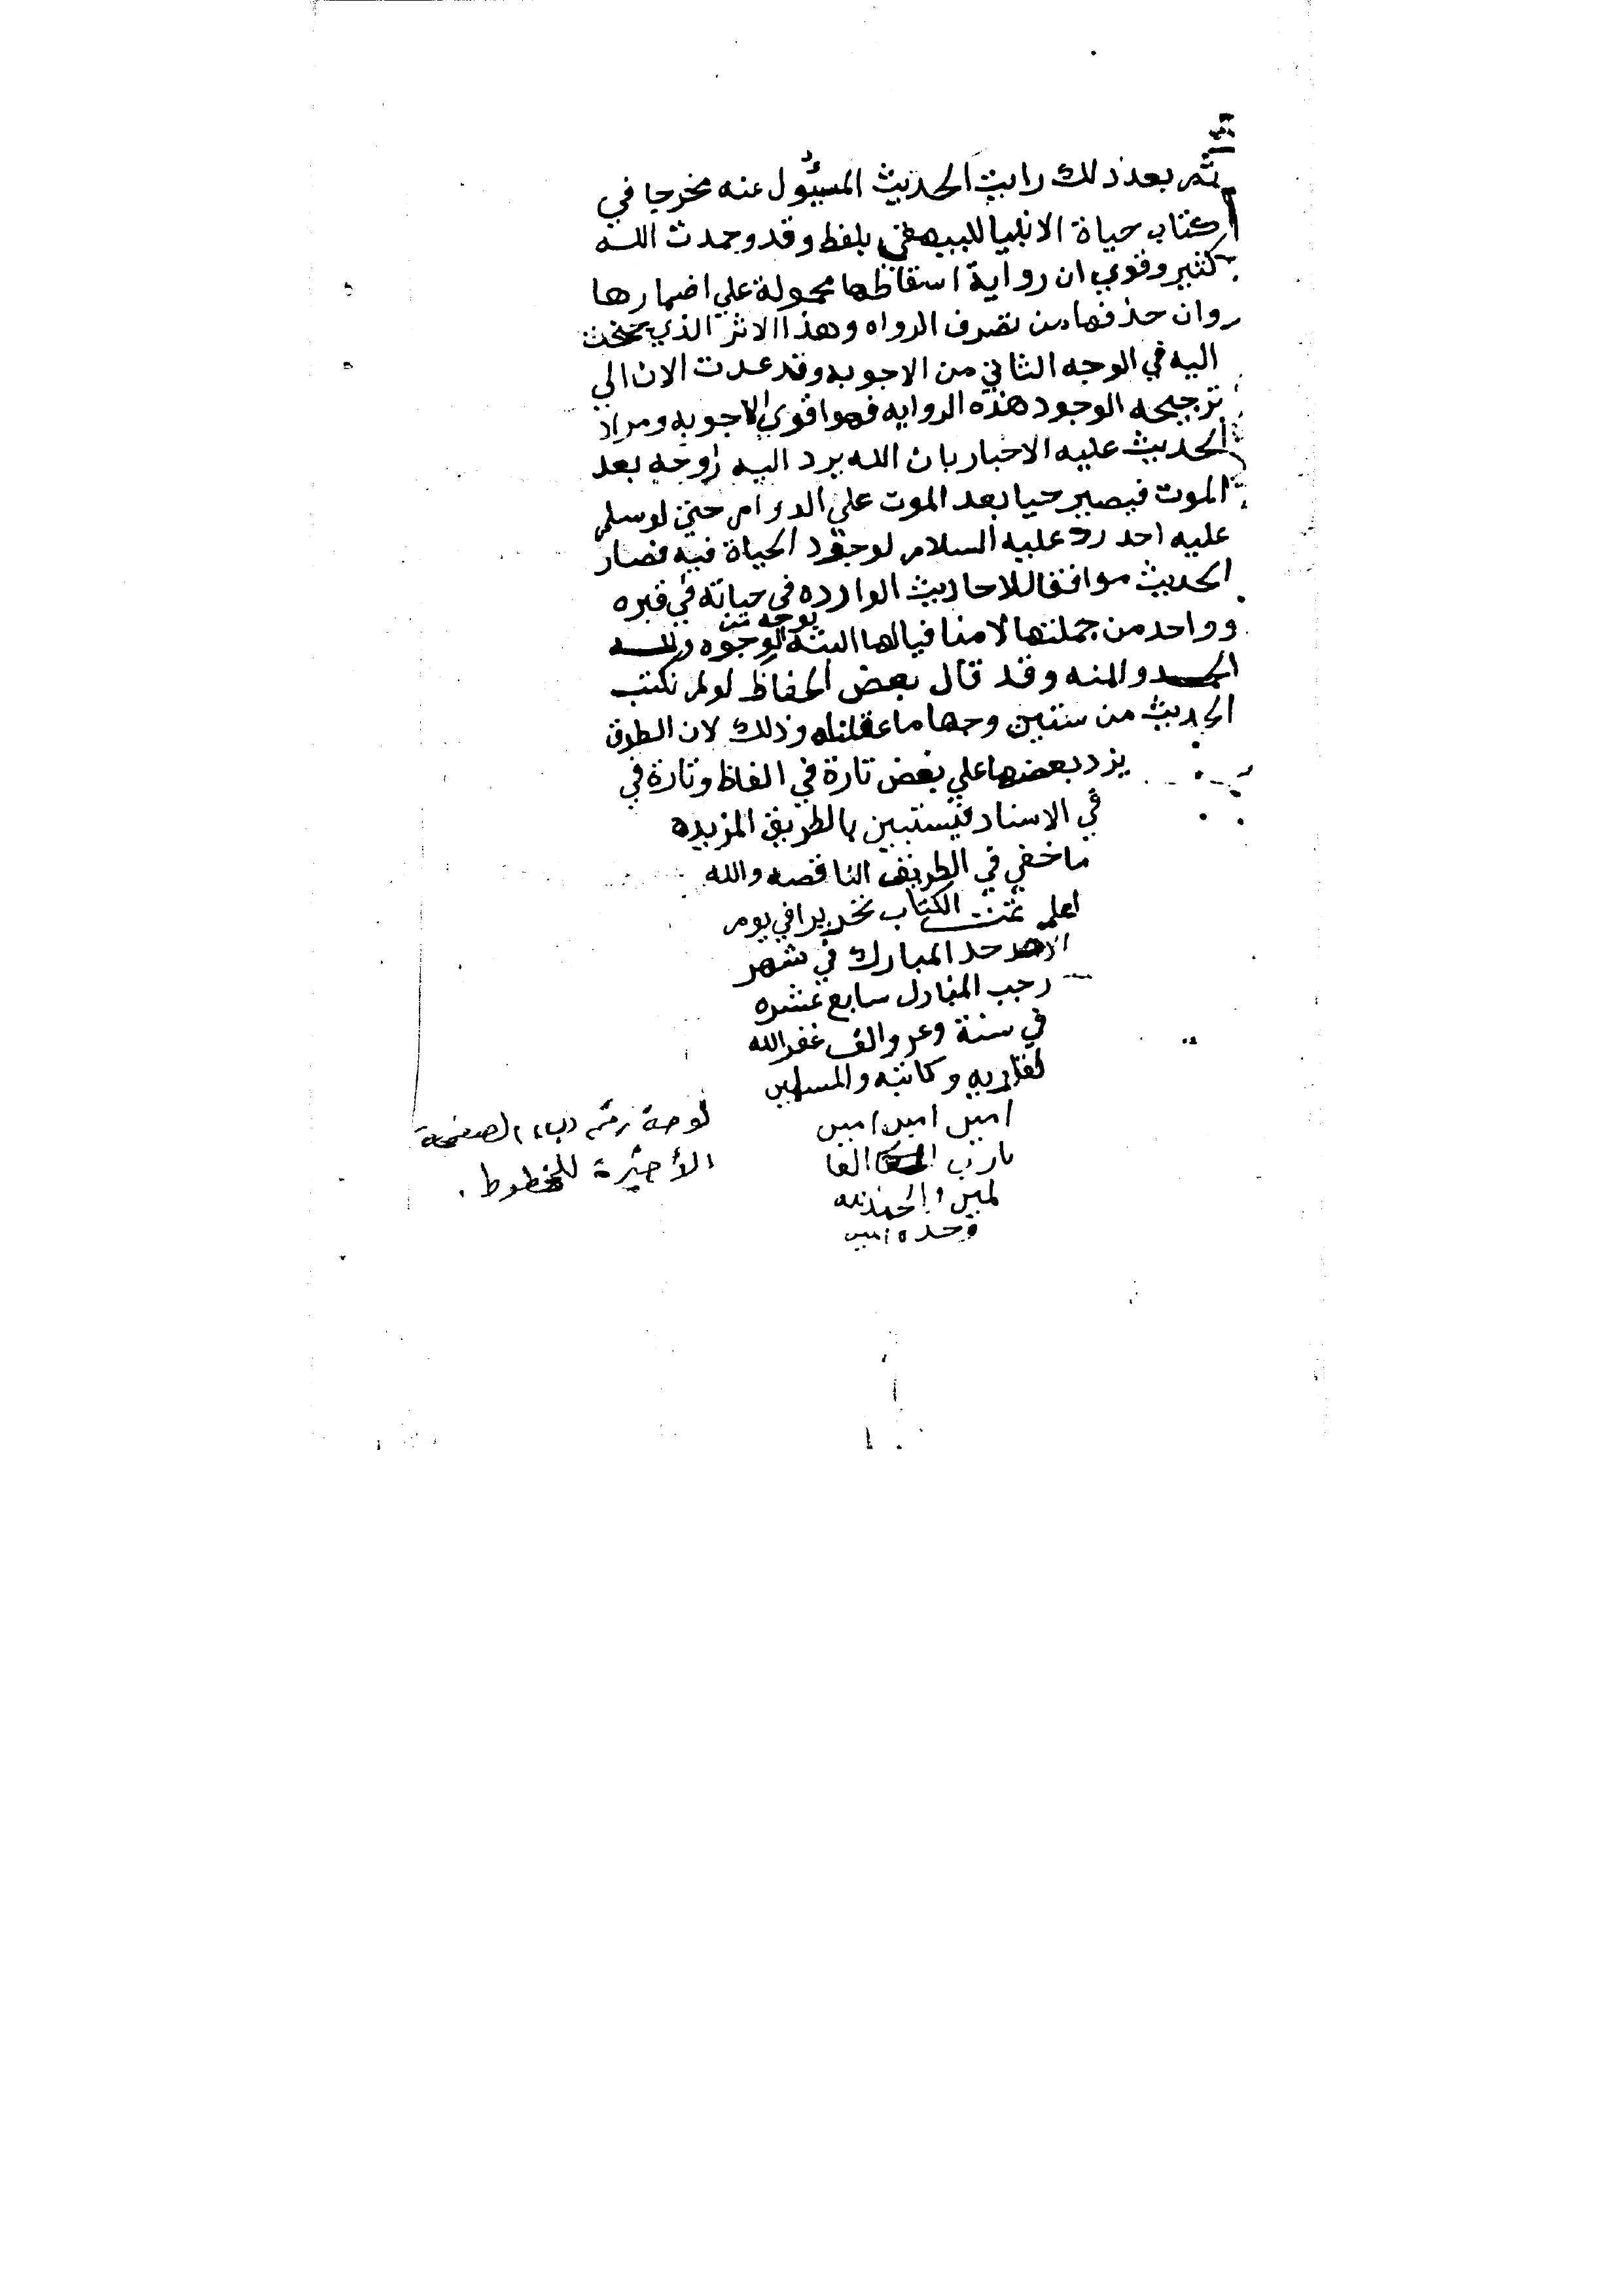 ثم بعد ذلك رايت الحديث المسئول عنه مخرجا في
كتاب حياة الانبيا للبيهقي بلفظ وقد وحمدت الله
كثير وقوي ان رواية اسقاطها محمولة علي اضمارها
وان حذفها من تصرف الرواه وهذا الاثر الذي
اليه في الوجه الثاني من الاجوبه وقد عدت الان الي
ترجيحه الوجود هذه الروايه فهو اقوي الاجوبه ومراد
الحديث عليه الاخبار بان الله يرد اليه روحه بعد
الموت فيصير حيا بعد الموت علي الدوام حتي لو سلم
عليه احد رد عليه السلام لوجود الحياة فيه فصار
الحديث موافقا للاحاديث الوارده في حياته في قبره
وواحد من جملتها لا منافيا لها البتة بوجه من الوجوه ولله
الحمد والمنه وقد قال بعض الحفاظ لو لم نكتب
الحديث من ستين وجها ما عقلناه وذلك لان الطرق
يزد بعضها علي بعض تارة في الفاظ وتارة في
في الاسناد فيستبين بالطريق المزيده
ما خفي في الطريق الناقصه والله
اعلم تمت الكتاب تحريرا في يوم
حد المبارك في شهر
رجب المبارك سابع عشره
في سنة والف غفر الله
لقاريه وكاتبه والمسلمين
امين امين امين
يا رب العا
لمين والحمد لله
وحده امين
لوحة رقم (ب) الصفحة
الأخيرة للمخطوط.